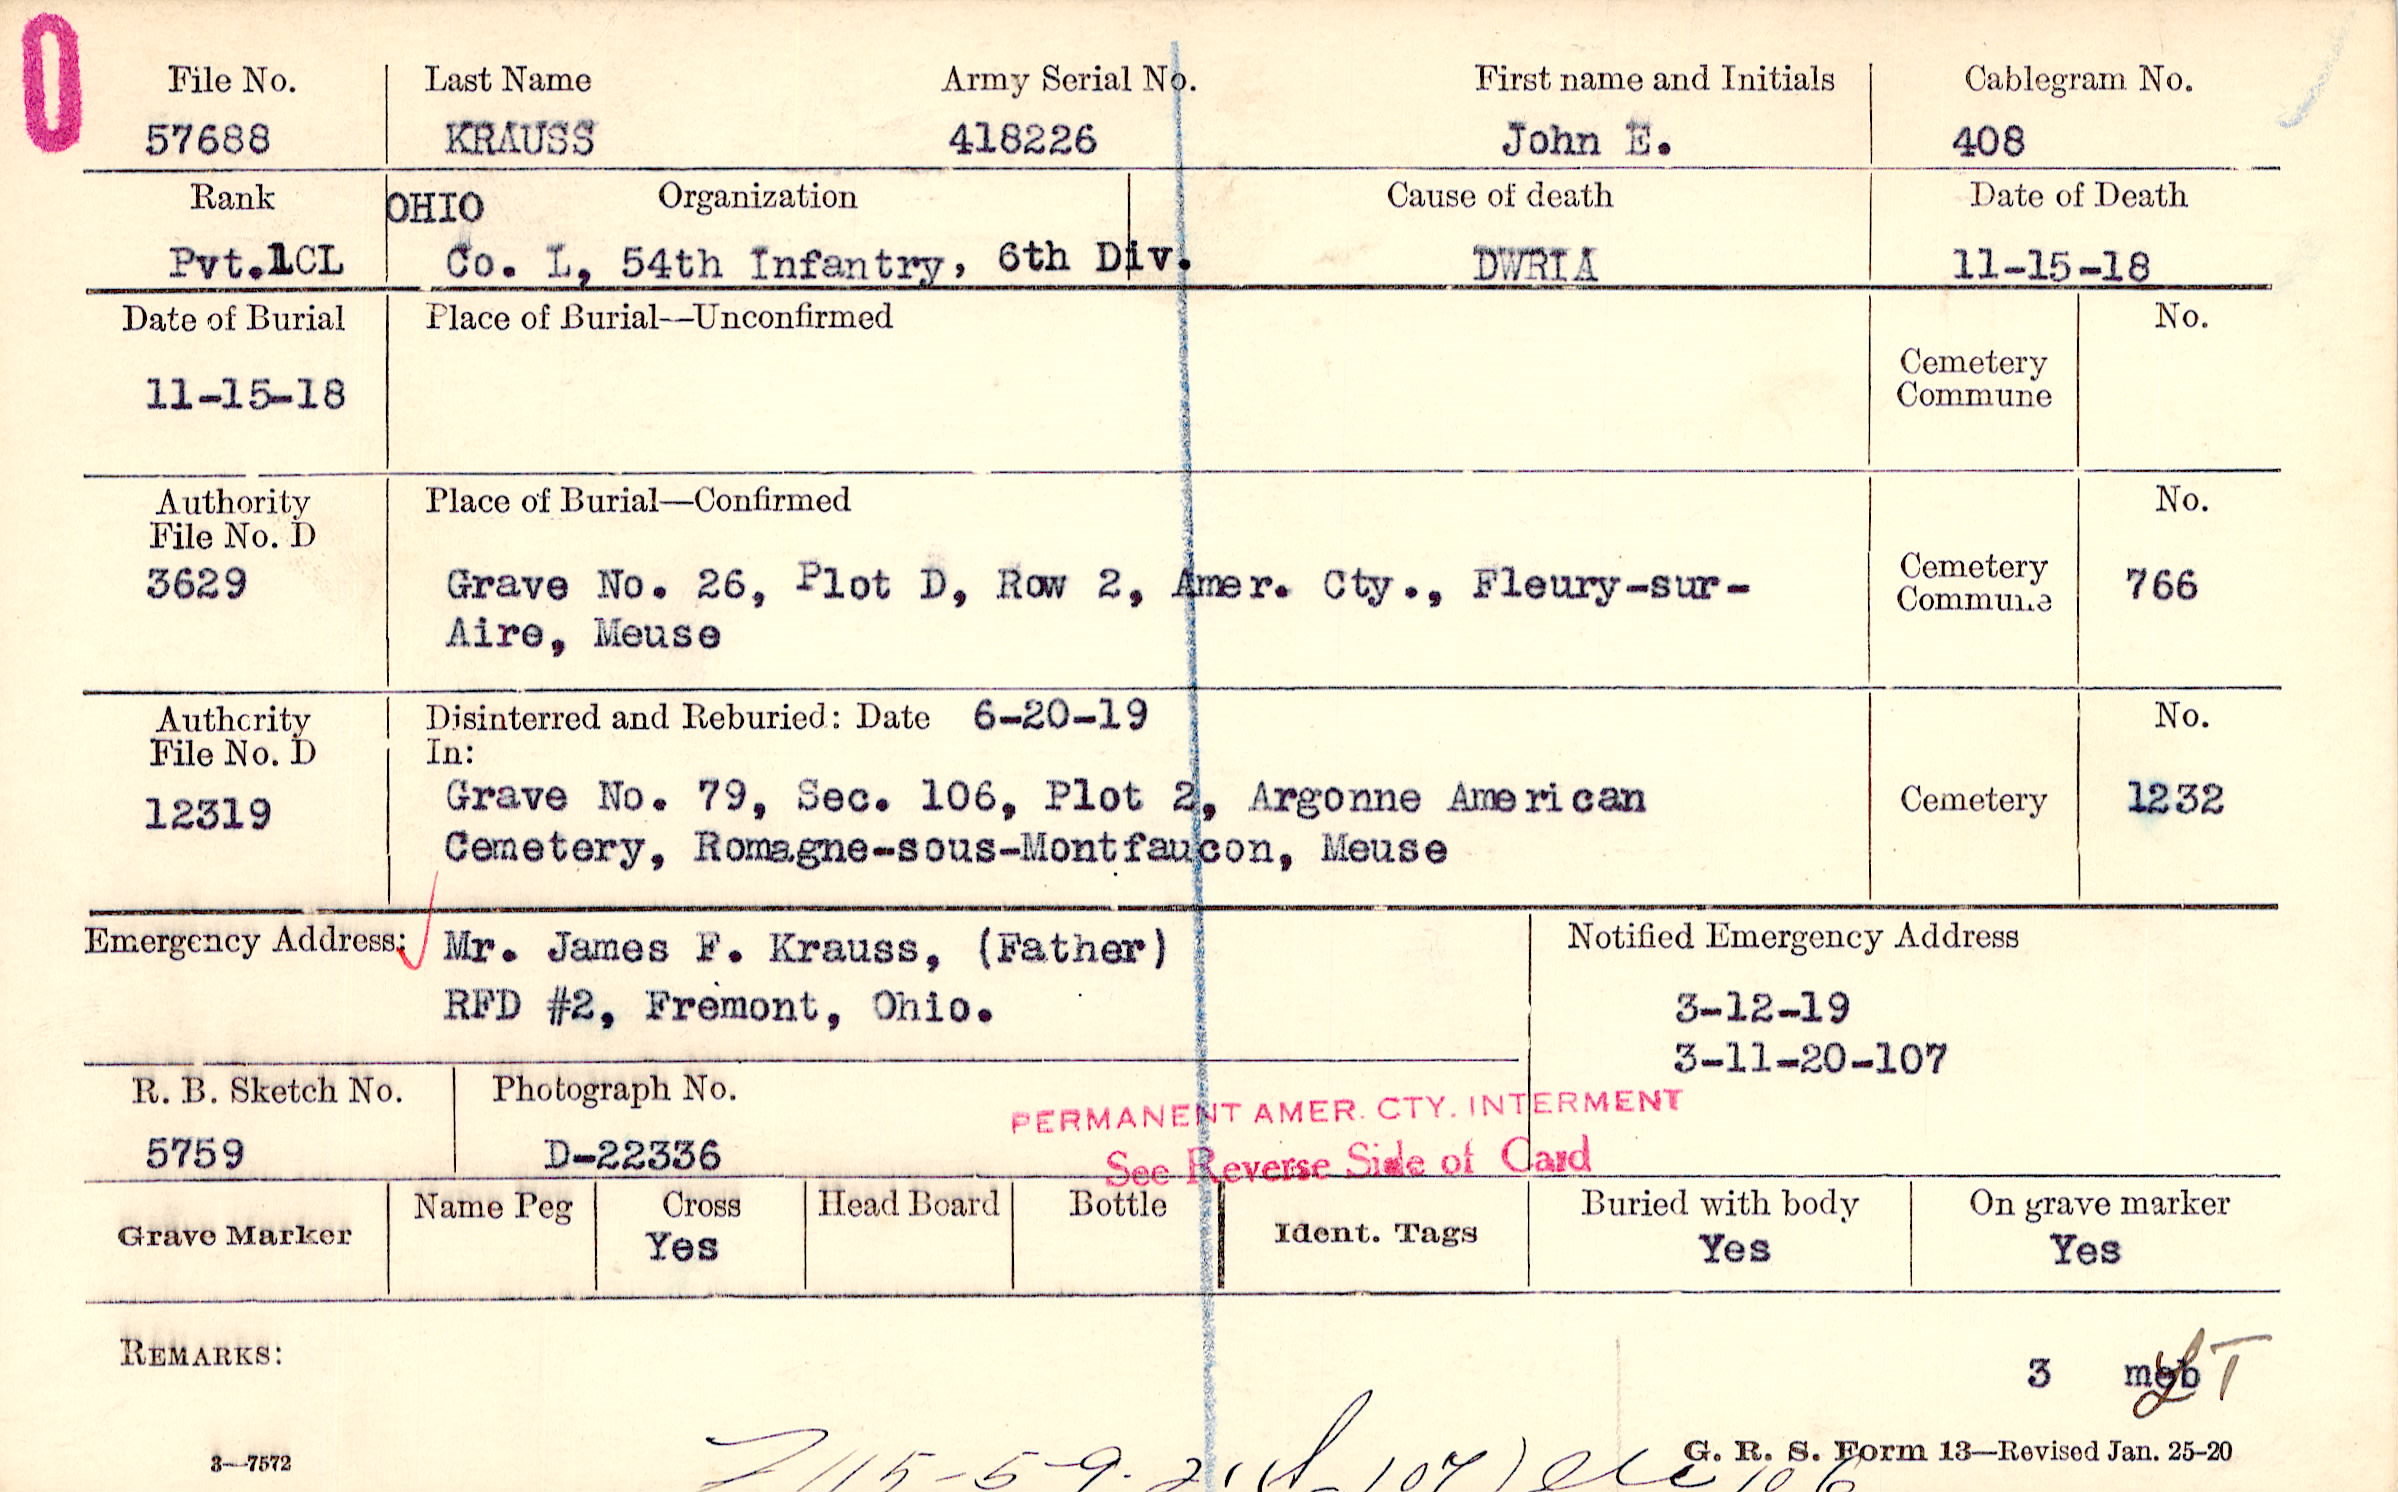 File No. Last Name Army Serial No. First name and Initials Cablegram No.
57688 KRAUSS 418226 John E. 408
Rank OHIO Organization Cause of death Date of Death
Pvt.1CL Co. L, 54th Infantry, 6th Div. DWRIA 11-15-18
Date of Burial Place of Burial—Unconfirmed No.
Cemetery
11-15-18 Commune
Authority Place of Burial—Confirmed No.
File No. D
3629 Grave No. 26, Plot D, Row 2, Amer. Cty., Fleury-sur- Cemetery 766
Aire, Meuse Commune
Authority Disinterred and Reburied: Date 6-20-19 No.
File No. D In:
12319 Grave No. 79, Sec. 106, Plot 2, Argonne American Cemetery 1232
Cemetery, Romagne-sous-Montfaucon, Meuse
Emergency Address: Mr. James F. Krauss, (Father) Notified Emergency Address
RFD #2, Fremont, Ohio. 3-12-19
3-11-20-107
R. B. Sketch No. Photograph No.
PERMANENT AMER. CTY. INTERMENT
5759 D-22336 See Reverse Side of Card
Grave Marker Name Peg Cross Head Board Bottle Ident. Tags Buried with body On grave marker
Yes Yes Yes
REMARKS:
3 meb
3—7572 G. R. S. Form 13—Revised Jan. 25-20